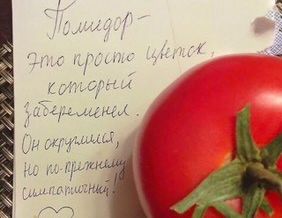 Помидор -
это просто цветок,
который
забеременел.
Он округлился,
но по-прежнему
симпатичный!